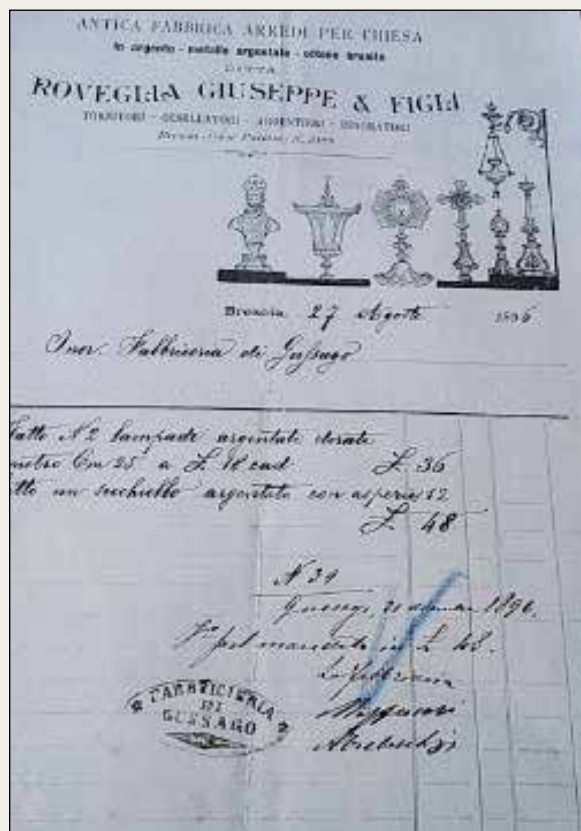 ANTICA FABBRICA ARREDI PER CHIESA
in argento - metallo argentato - ottone
DITTA
ROVEGLIA GIUSEPPE & FIGLI
TORNITORI - CESELLATORI - ARGENTIERI - INDORATORI
Brescia
Brescia, 27 Agosto 1896
Onor. Fabbriceria di Gussago
fatto N 2 lampade argentate dorate
metro Cm 25 a £. 18 cad £. 36
un secchiello argentato con asperges 12
£. 48
N 39
1896.
pel mandato in £ 48.
La fabbriceria
FABBRICIERIA
DI
GUSSAGO